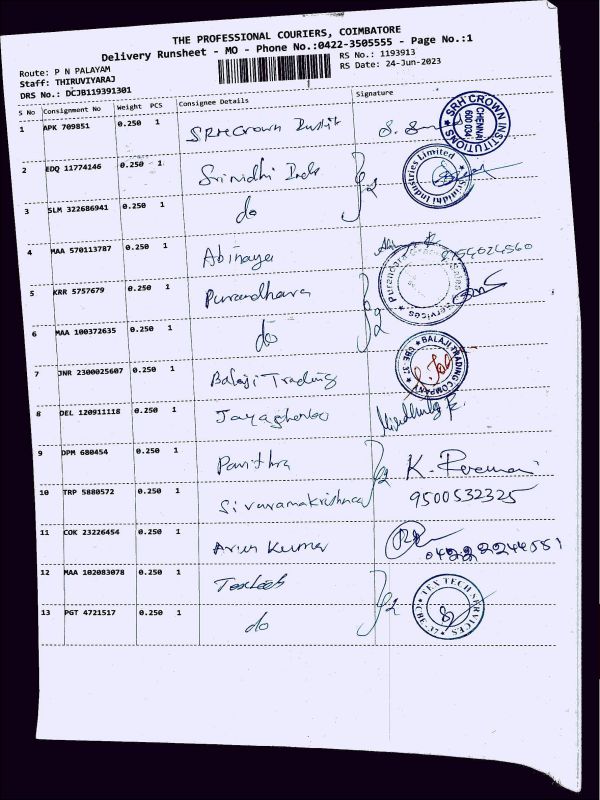 THE PROFESSIONAL COURIERS, COIMBATORE
Delivery Runsheet - MO - Phone No.:0422-3505555 - Page No.:1
Route: P N PALAYAM
Staff: THIRUVIYARAJ
DRS No.: DCJB119391301
RS No.: 1193913
RS Date: 24-Jun-2023
S No Consignment No Weight PCS Consignee Details Signature
1 APK 709851 0.250 1 SRH Crown
SRH CROWN INSTITUTIONS CHENNAI 600 034
2 EDQ 11774146 0.250 1 Srinidhi Inds
Srinidhi Industries Limited
3 SLM 322686941 0.250 1 do
4 MAA 570113787 0.250 1 Abinaya
5 KRR 5757679 0.250 1 Purandhara
6 MAA 100372635 0.250 1 do
7 JNR 2300025607 0.250 1 Balaji Trading
BALAJI TRADING COMPANY CBE-37
8 DEL 120911118 0.250 1
9 DPM 680454 0.250 1 Pavithra
10 TRP 5880572 0.250 1 Sivaramakrishna 9500532325
11 COK 23226454 0.250 1 Arun Kumar
12 MAA 102083078 0.250 1
13 PGT 4721517 0.250 1 do
TEX TECH SERVICES CBE-37